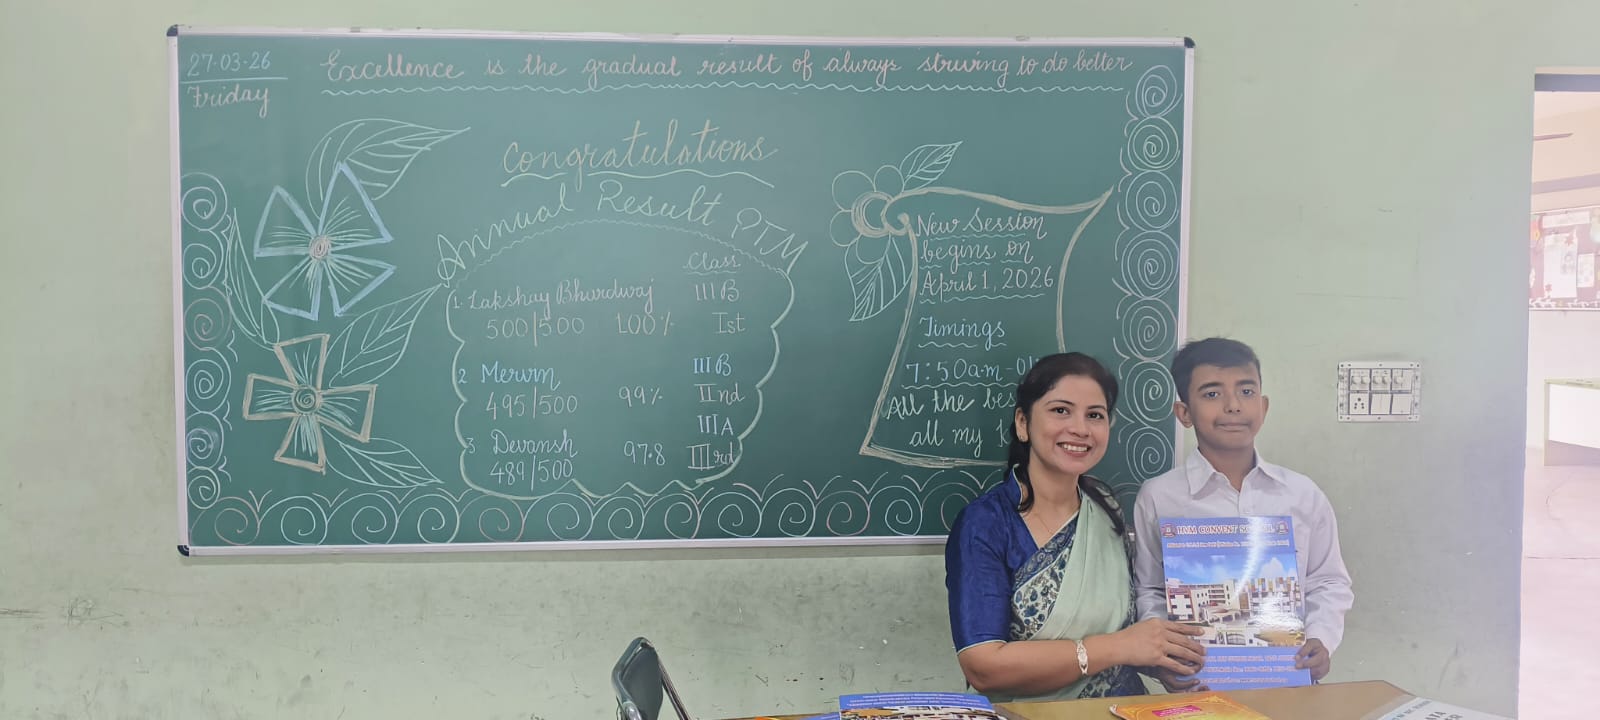 27.03.26
Friday
Excellence is the gradual result of always striving to do better
Congratulations
Annual Result PTM
Class
1. Lakshay Bhardwaj III B
500/500 100% Ist
2 Mervin III B
495/500 99% IInd
3 Devansh III A
489/500 97.8 IIIrd
New Session
begins on
April 1, 2026
Timings
7:50am-01
All the bes
all my
HVM CONVENT SCHOOL